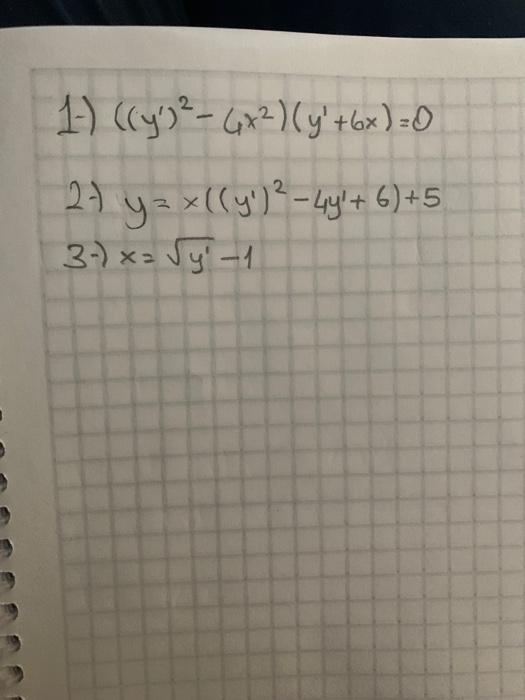 1-) ((y')² - 4x²)(y' + 6x) = 0
2-) y = x((y')² - 4y' + 6) + 5
3-) x = √y' - 1